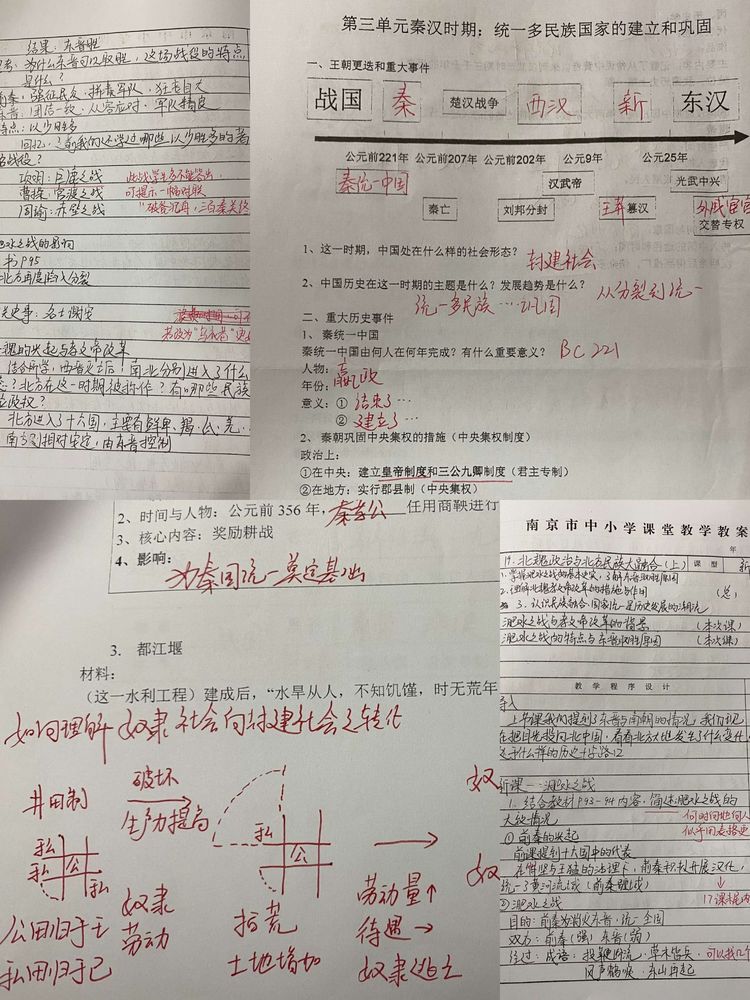 结果：东晋胜
是什么？
前秦：强征民众，拼凑军队，狂妄自大
东晋：团结一致，从容应对，军队精良
特点：以少胜多
回忆：之前我们还学过哪些以少胜多的著
名战役？
项羽：巨鹿之战
曹操：官渡之战
周瑜：赤壁之战
此战学生多不能答出
可提示一幅对联
"破釜沉舟，三百秦关终
淝水之战的影响
书P95
北方再度陷入分裂
北魏的兴起与孝文帝改革
结合所学，西晋灭亡后，南北分别进入了什么
态？北方在这一时期被称作？有哪些民族
立政权？
北方进入了十六国，主要有鲜卑、羯、氐、羌
南方则相对安定，由东晋控制
第三单元秦汉时期：统一多民族国家的建立和巩固
一、王朝更迭和重大事件
战国 秦 楚汉战争 西汉 新 东汉
公元前221年 公元前207年 公元前202年 公元9年 公元25年
秦统一中国 汉武帝 光武中兴
秦亡 刘邦分封 王莽篡汉 外戚宦官
交替专权
1、这一时期，中国处在什么样的社会形态？ 封建社会
2、中国历史在这一时期的主题是什么？发展趋势是什么？ 从分裂到统一
统一多民族…巩固
二、重大历史事件
1、秦统一中国
秦统一中国由何人在何年完成？有什么重要意义？ BC 221
人物：嬴政
年份：
意义：① 结束了…
② 建立了…
2、秦朝巩固中央集权的措施（中央集权制度）
政治上：
①在中央：建立皇帝制度和三公九卿制度（君主专制）
②在地方：实行郡县制（中央集权）
2、时间与人物：公元前 356 年，秦孝公 任用商鞅进行
3、核心内容：奖励耕战
4、影响：
为秦国统一奠定基础
3. 都江堰
材料：
（这一水利工程）建成后，"水旱从人，不知饥馑，时无荒年
如何理解奴隶社会向封建社会之转化
井田制
破坏
生产力提高
私
私 公
私
私
公
奴
奴
公田归于王
私田归于己
奴隶
劳动
拓荒
土地增加
劳动量↑
待遇→
奴隶逃亡
南京市中小学课堂教学教案
年
19. 北魏政治与北方民族大融合（上） 课型 新
2. 理解北魏孝文帝改革的措施与作用 （总）
3. 认识民族融合、国家统一是历史发展的潮流
淝水之战与孝文帝改革的背景 （本次课）
淝水之战的特点与东晋取胜原因 （本次课）
教学程序设计
导入
上节课我们提到了东晋与南朝的情况，我们现
在把目光投向北中国，看看北方大地发生了什么变化
新课一：淝水之战
1. 结合教材P93-94内容，简述淝水之战的
大致情况
何时何地何人
似乎用表格更
① 前秦的兴起
前课提到十六国中的代表
在苻坚与王猛的治理下，前秦积极开展汉化，
统一了黄河流域（前秦疆域）
② 淝水之战
17课末尾内
目的：前秦为消灭东晋，统一全国
双方：前秦（强）东晋（弱）
经过：成语：投鞭断流，草木皆兵，
风声鹤唳，东山再起
可以找几个